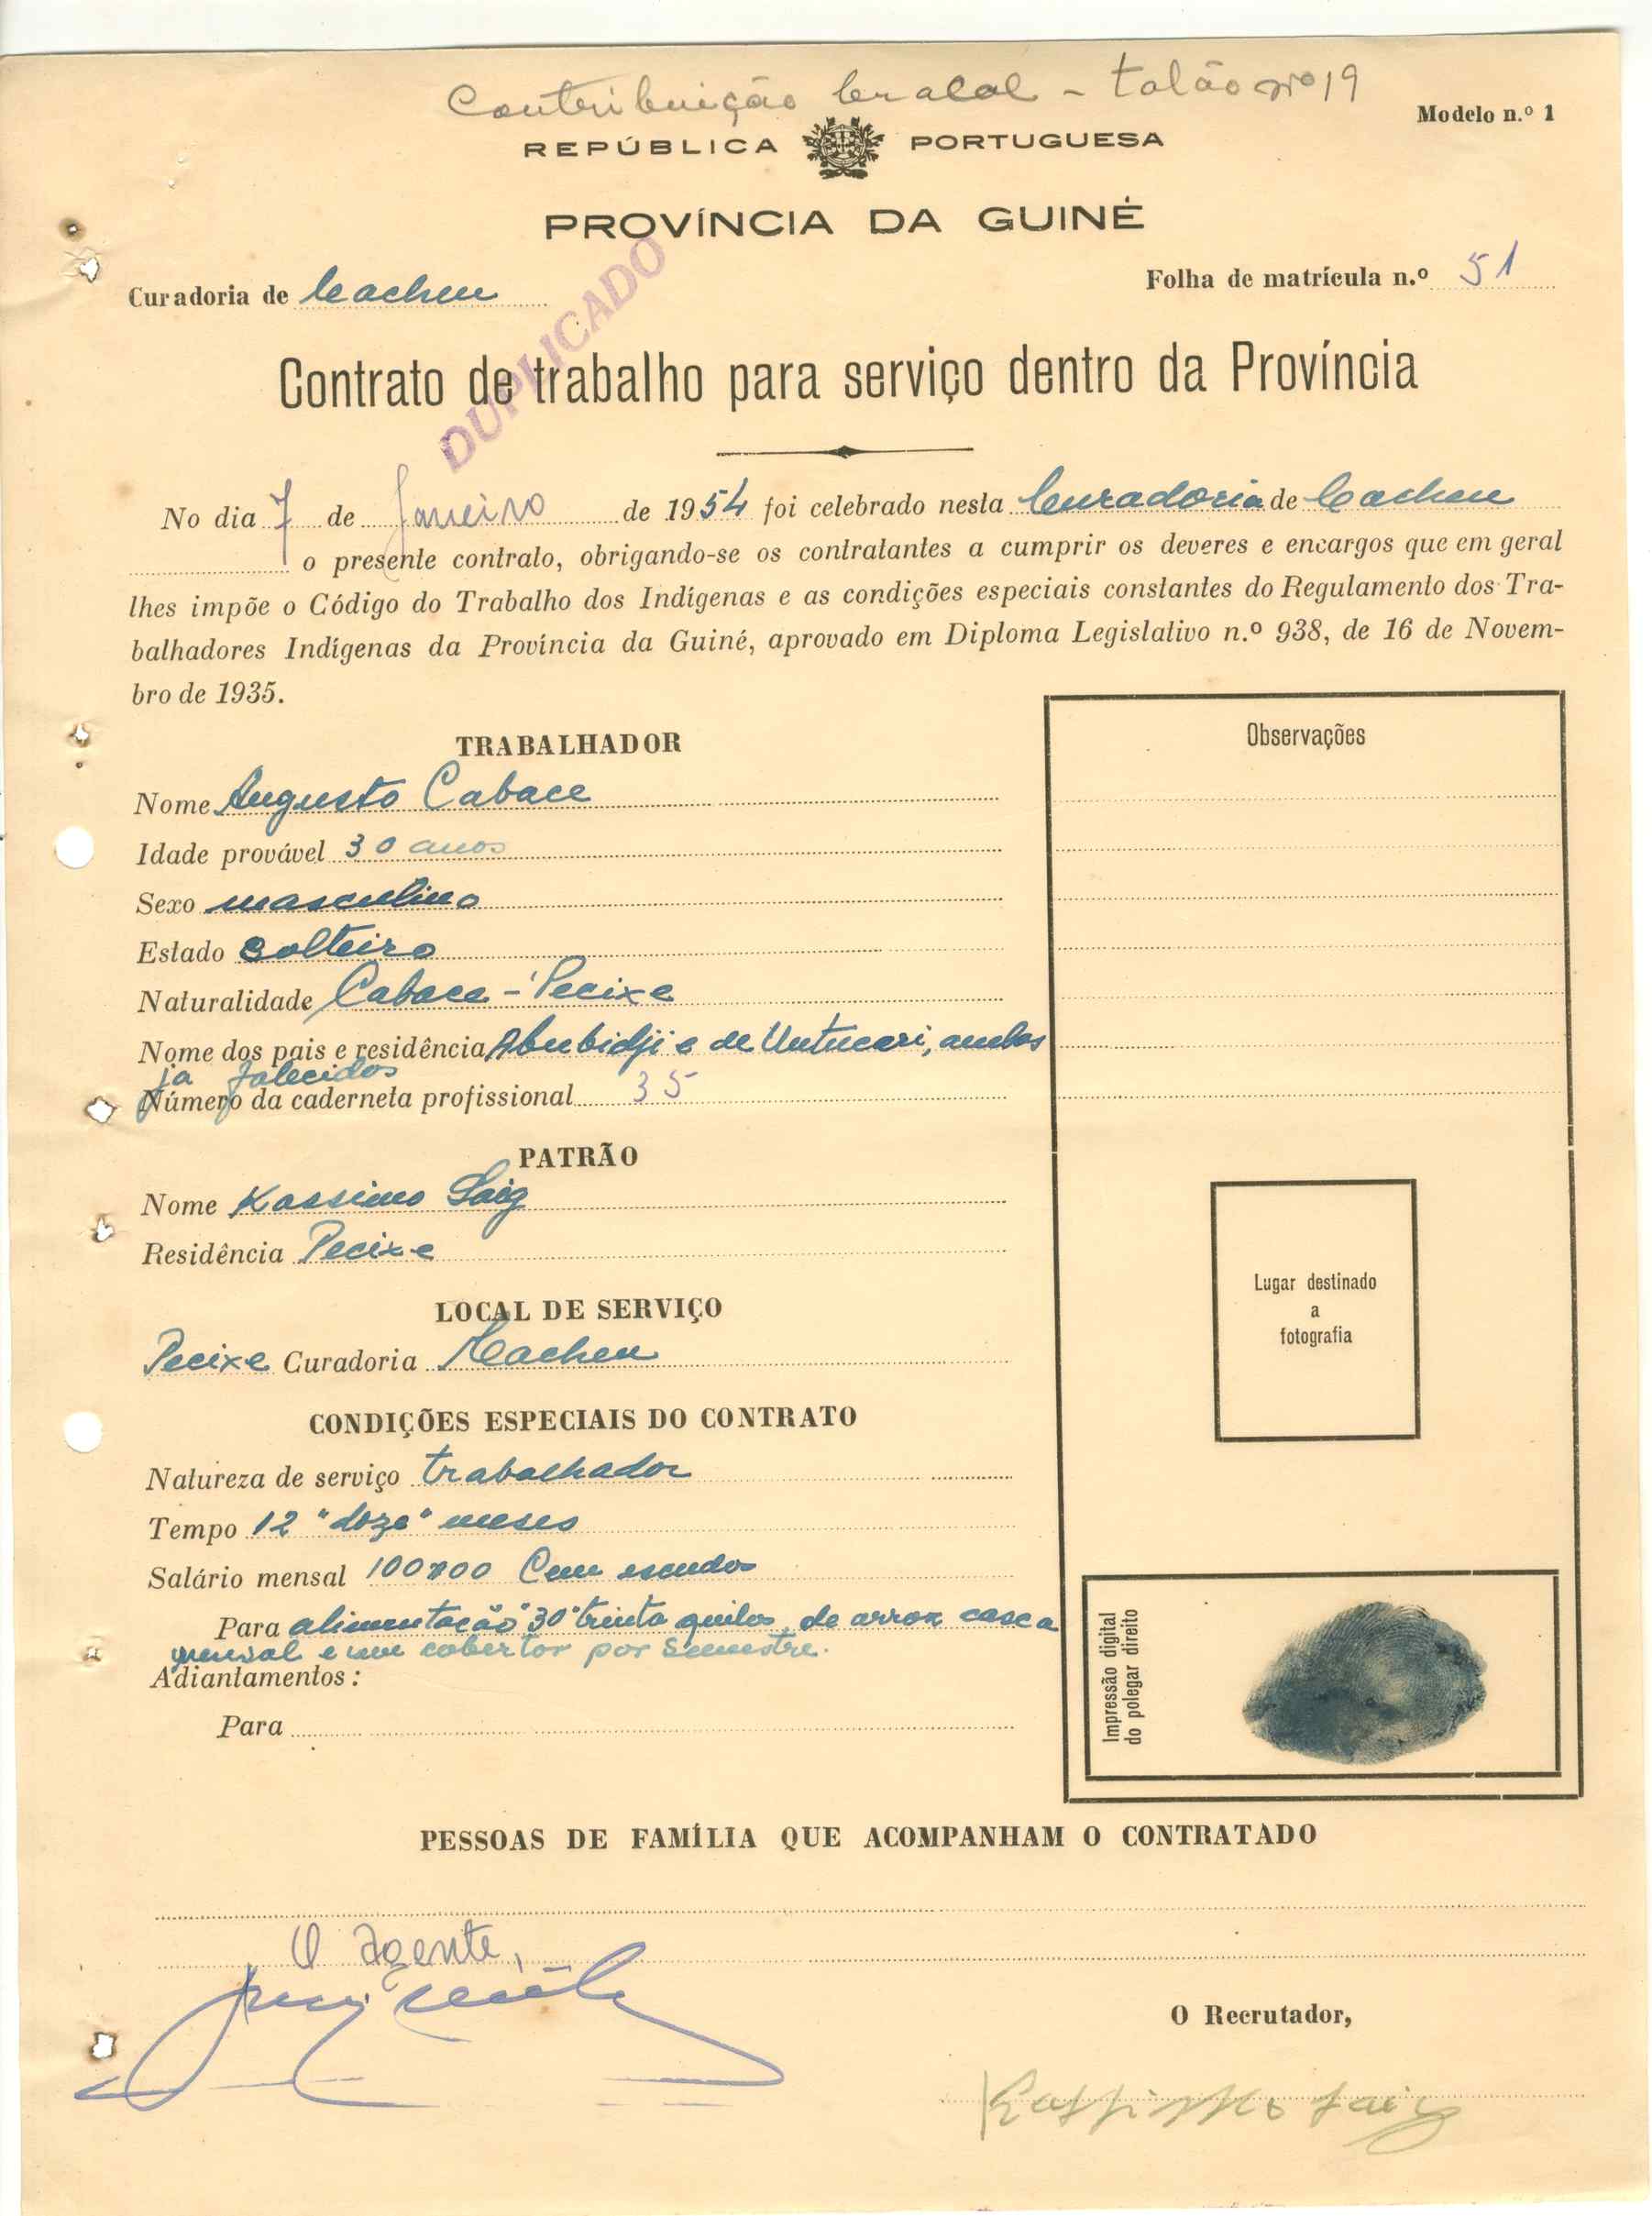 Contribuição braçal - talão nº 19
Modelo n.º 1
REPÚBLICA PORTUGUESA
PROVÍNCIA DA GUINÉ
DUPLICADO
Curadoria de Cacheu
Folha de matrícula n.º 51
Contrato de trabalho para serviço dentro da Província
No dia 7 de Janeiro de 1954 foi celebrado nesta Curadoria de Cacheu
o presente contrato, obrigando-se os contratantes a cumprir os deveres e encargos que em geral
lhes impõe o Código do Trabalho dos Indígenas e as condições especiais constantes do Regulamento dos Tra-
balhadores Indígenas da Província da Guiné, aprovado em Diploma Legislativo n.º 938, de 16 de Novem-
bro de 1935.
TRABALHADOR
Nome Augusto Cabace
Idade provável 30 anos
Sexo masculino
Estado solteiro
Naturalidade Cabace - Pecixe
Nome dos pais e residência Abubidji e de Untucari, ambos
já falecidos
Número da caderneta profissional 35
PATRÃO
Nome Kassimo Saig
Residência Pecixe
LOCAL DE SERVIÇO
Pecixe Curadoria Cacheu
CONDIÇÕES ESPECIAIS DO CONTRATO
Natureza de serviço trabalhador
Tempo 12 "doze" meses
Salário mensal 100$00 Cem escudos
Para alimentação "30" trinta quilos de arroz casca
mensal e um cobertor por Semestre.
Adiantamentos:
Para
Observações
Lugar destinado
a
fotografia
Impressão digital
do polegar direito
PESSOAS DE FAMÍLIA QUE ACOMPANHAM O CONTRATADO
O agente,
O Recrutador,
Kassimo Saig